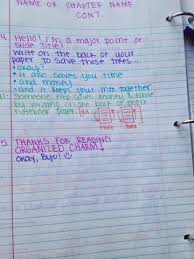 NAME OF CHAPTER NAME
CONT.
4. Hello! I'm a major point or
Slide Title!
Write on the back of your
paper to save those trees...
• okay?
• it also saves you time
• and money
• and it keeps your info together
Someone who saves money & time
by writing on the back of their
notebook paper.
front
back
5 THANKS FOR READING
ORGANIZED CHARM!
okay, Bye! ☺